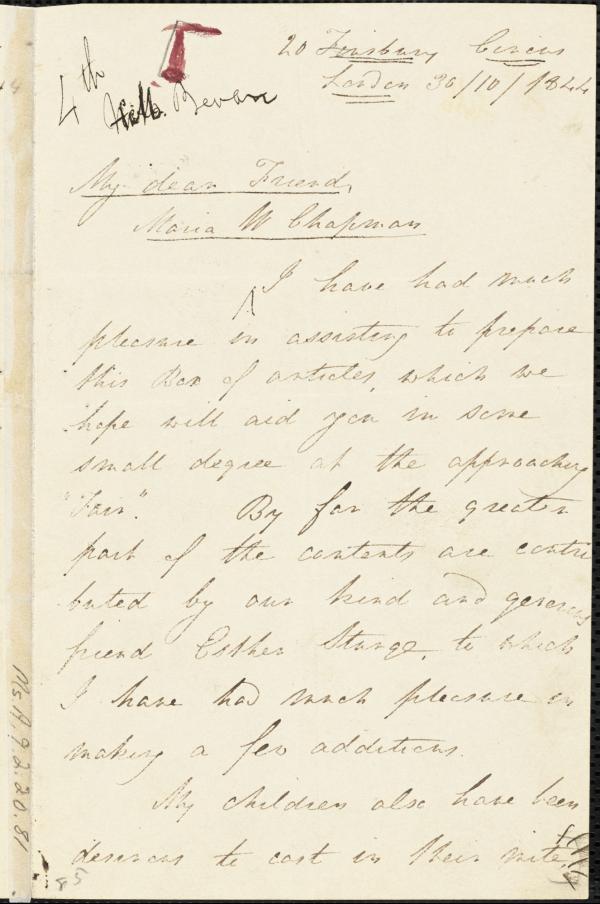 20 Finsbury Circus
London 30/10/1844
4th
Bevan
My dear Friend,
Maria W Chapman
I have had much
pleasure in assisting to prepare
this Box of articles, which we
hope will aid you in some
small degree at the approaching
"Fair". By far the greater
part of the contents are contri
buted by our kind and generous
friend Esther Sturge, to which
I have had much pleasure in
making a few additions.
My children also have been
desirous to cast in their mite,
85
Ms.A.9.2.20.81